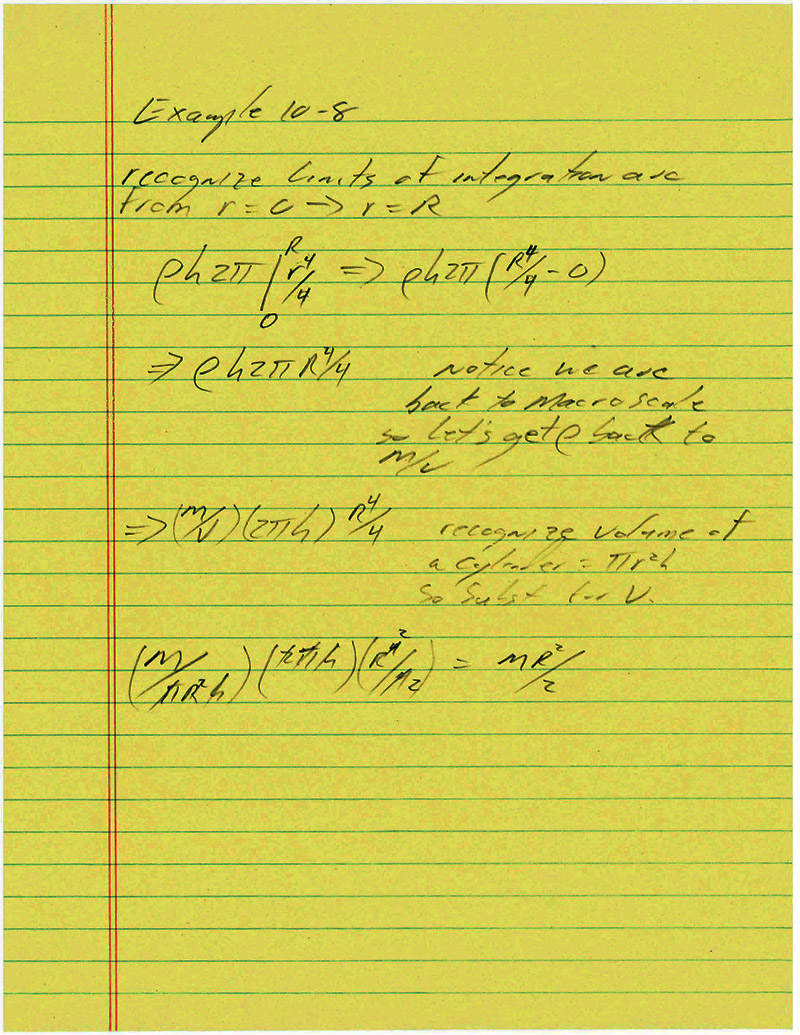 Example 10-8
recognize limits of integration are
from r = 0 → r = R
ρh2π |₀ᴿ r⁴/4 ⇒ ρh2π (R⁴/4 - 0)
⇒ ρh2π R⁴/4 notice we are
back to macro scale
so let's get ρ back to
m/v
⇒ (m/V) (2πh) R⁴/4 recognize volume of
a cylinder = πr²h
so subst for V.
(m/πR²h) (2πh) (R⁴²/4 2) = mR²/2